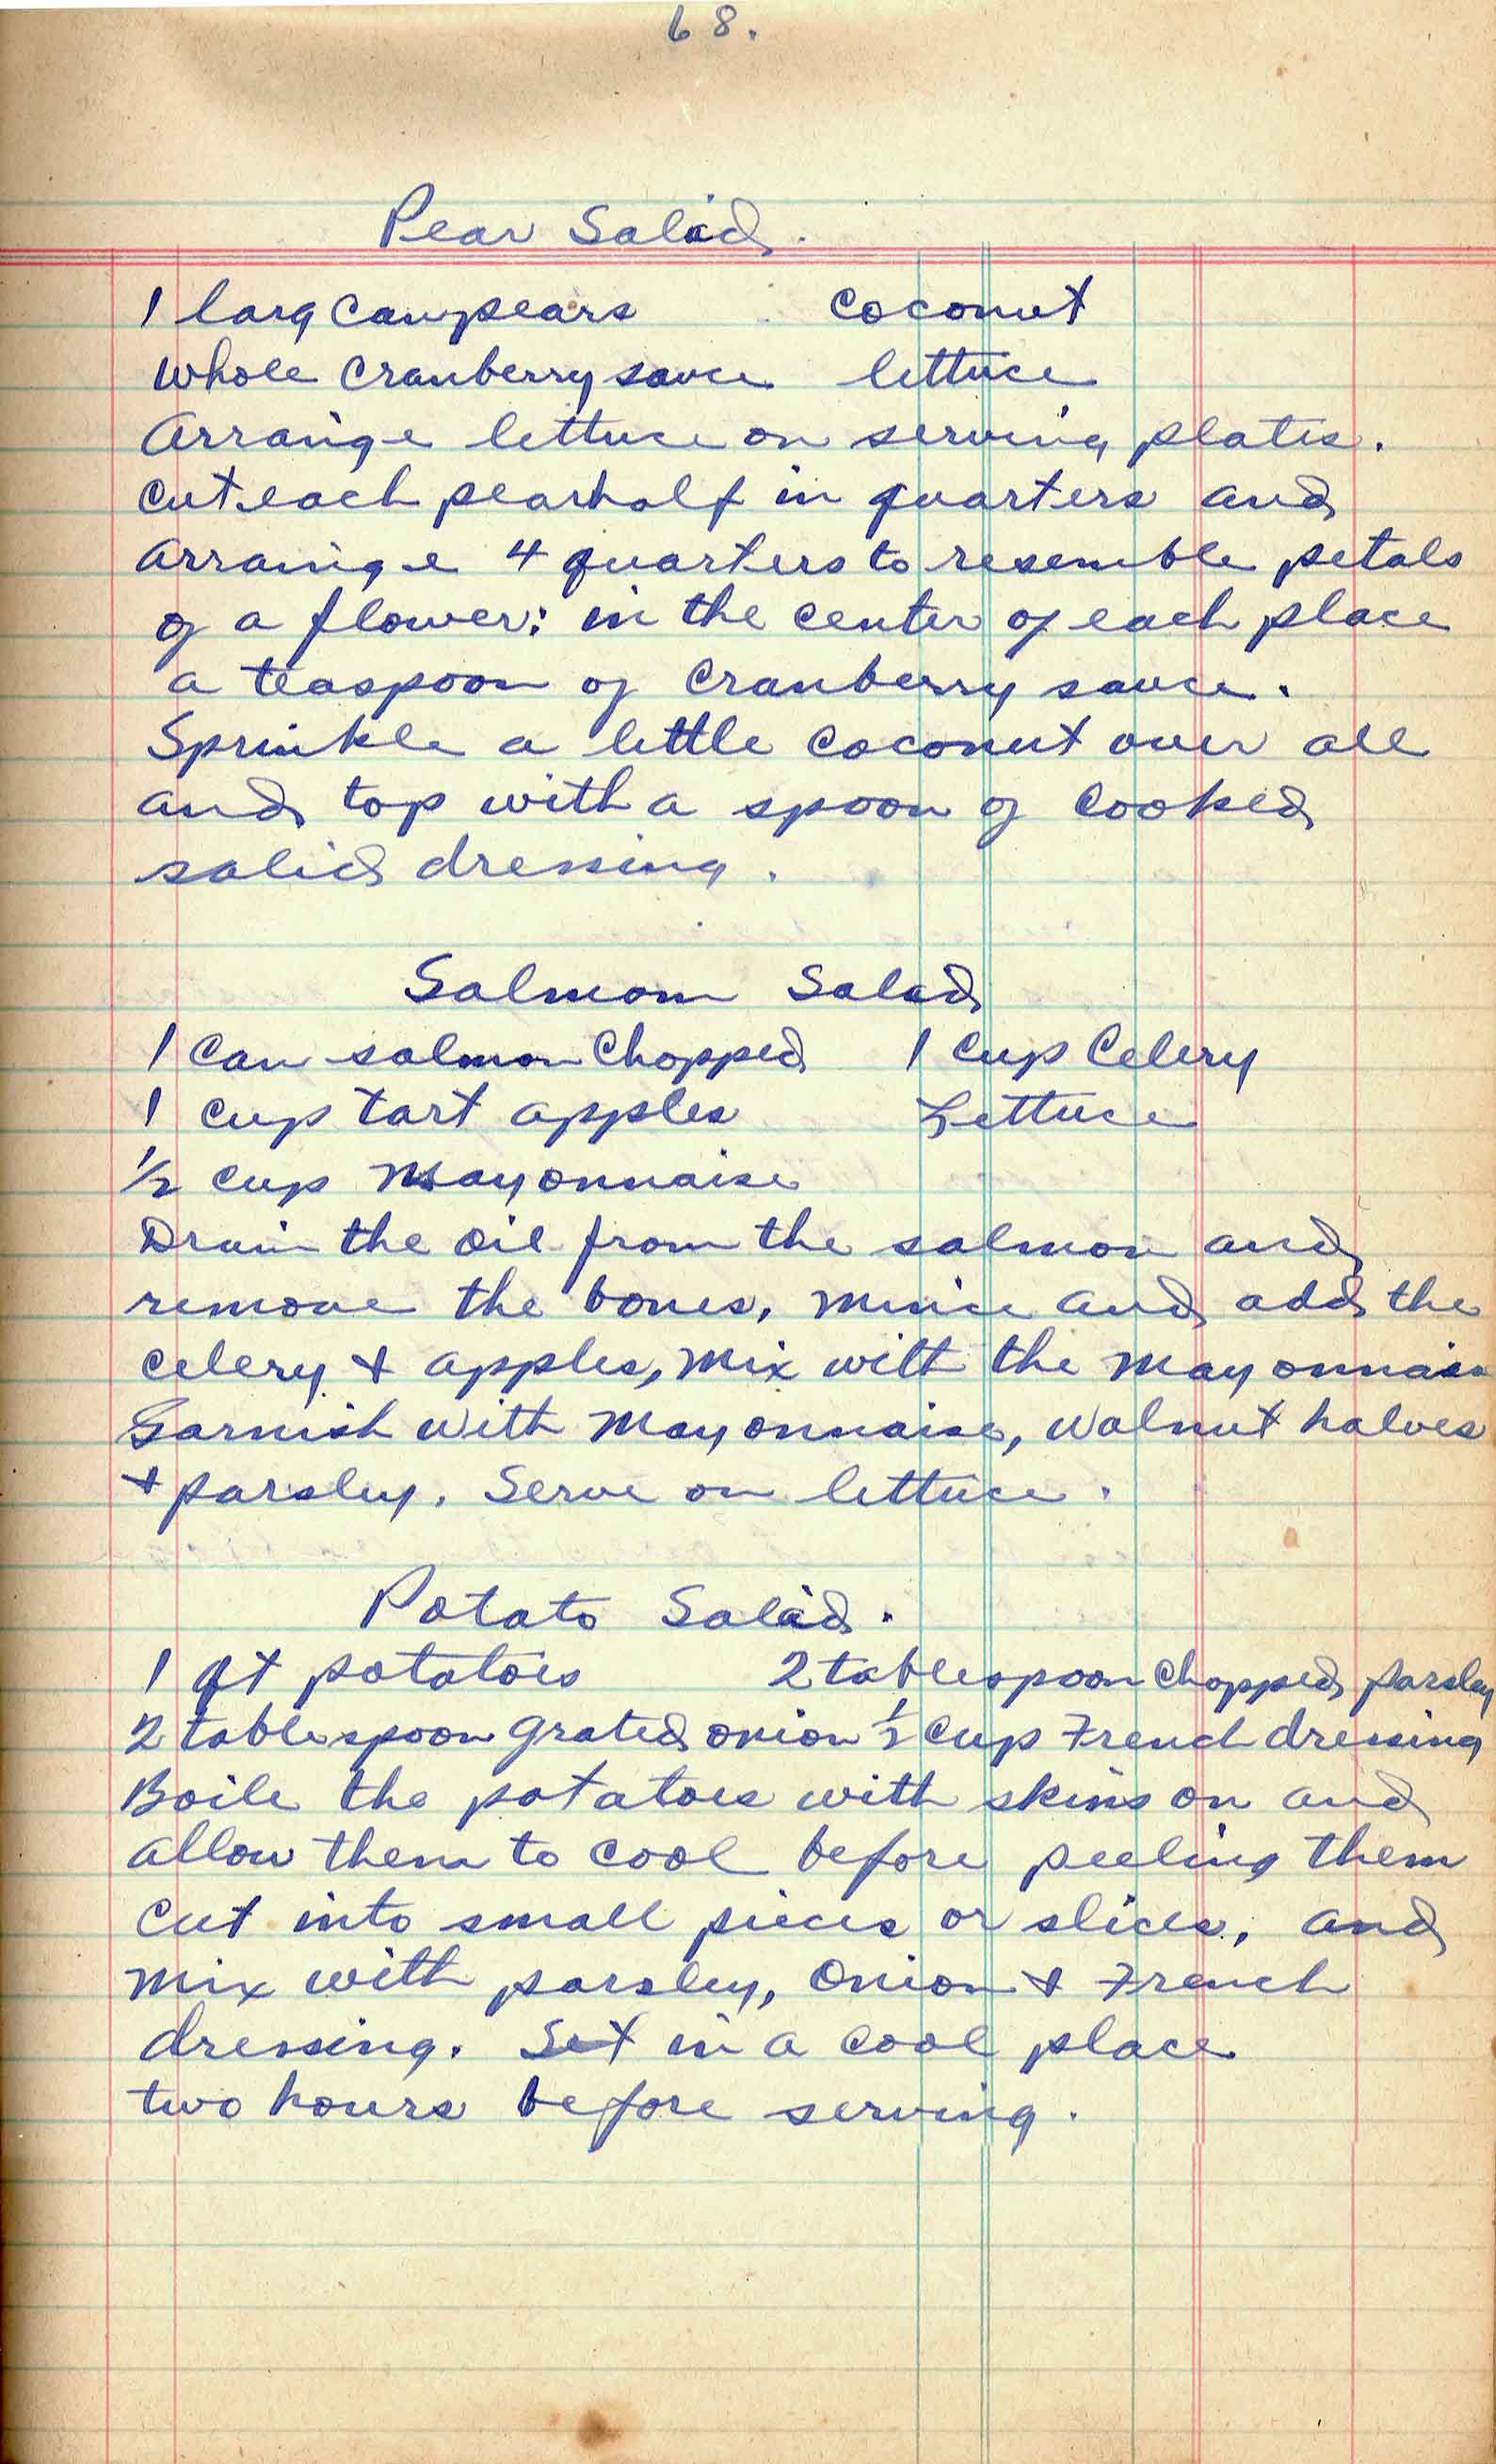 68.
Pear Salad.
1 larg can pears coconut
whole cranberry sauce lettuce
Arrange lettuce on serving plates.
cut each pear half in quarters and
arrange 4 quarters to resemble petals
of a flower; in the center of each place
a teaspoon of cranberry sauce.
Sprinkle a little coconut over all
and top with a spoon of cooked
salid dressing.
Salmon Salad
1 can salmon chopped 1 cup Celery
1 cup tart apples Lettuce
1/2 cup Mayonnaise
Drain the oil from the salmon and
remove the bones, mince and add the
celery & apples, mix with the mayonnaise
Garnish with mayonnaise, walnut halves
& parsley. Serve on lettuce.
Potato Salad.
1 qt potatoes 2 tablespoon chopped parsley
2 tablespoon grated onion 1/2 cup French dressing
Boile the potatoes with skins on and
allow them to cool before peeling them
cut into small pieces or slices, and
mix with parsley, onion & French
dressing. Set in a cool place
two hours before serving.